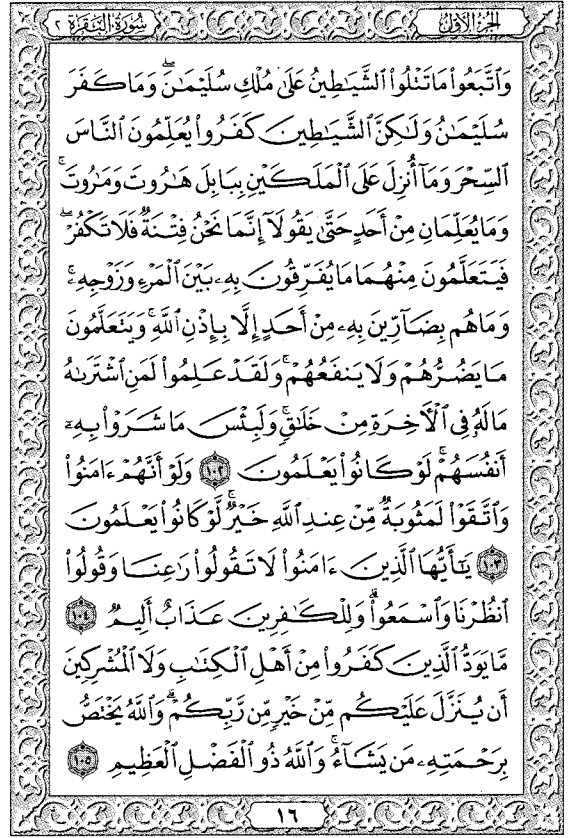 الجزء الأول
سورة البقرة ٢
وَٱتَّبَعُوا۟ مَا تَتْلُوا۟ ٱلشَّيَـٰطِينُ عَلَىٰ مُلْكِ سُلَيْمَـٰنَ ۖ وَمَا كَفَرَ
سُلَيْمَـٰنُ وَلَـٰكِنَّ ٱلشَّيَـٰطِينَ كَفَرُوا۟ يُعَلِّمُونَ ٱلنَّاسَ
ٱلسِّحْرَ وَمَآ أُنزِلَ عَلَى ٱلْمَلَكَيْنِ بِبَابِلَ هَـٰرُوتَ وَمَـٰرُوتَ ۚ
وَمَا يُعَلِّمَانِ مِنْ أَحَدٍ حَتَّىٰ يَقُولَآ إِنَّمَا نَحْنُ فِتْنَةٌ فَلَا تَكْفُرْ ۖ
فَيَتَعَلَّمُونَ مِنْهُمَا مَا يُفَرِّقُونَ بِهِۦ بَيْنَ ٱلْمَرْءِ وَزَوْجِهِۦ ۚ
وَمَا هُم بِضَآرِّينَ بِهِۦ مِنْ أَحَدٍ إِلَّا بِإِذْنِ ٱللَّهِ ۚ وَيَتَعَلَّمُونَ
مَا يَضُرُّهُمْ وَلَا يَنفَعُهُمْ ۚ وَلَقَدْ عَلِمُوا۟ لَمَنِ ٱشْتَرَىٰهُ
مَا لَهُۥ فِى ٱلْـَٔاخِرَةِ مِنْ خَلَـٰقٍ ۚ وَلَبِئْسَ مَا شَرَوْا۟ بِهِۦٓ
أَنفُسَهُمْ ۚ لَوْ كَانُوا۟ يَعْلَمُونَ ١٠٢ وَلَوْ أَنَّهُمْ ءَامَنُوا۟
وَٱتَّقَوْا۟ لَمَثُوبَةٌ مِّنْ عِندِ ٱللَّهِ خَيْرٌ ۖ لَّوْ كَانُوا۟ يَعْلَمُونَ
١٠٣ يَـٰٓأَيُّهَا ٱلَّذِينَ ءَامَنُوا۟ لَا تَقُولُوا۟ رَٰعِنَا وَقُولُوا۟
ٱنظُرْنَا وَٱسْمَعُوا۟ ۗ وَلِلْكَـٰفِرِينَ عَذَابٌ أَلِيمٌ ١٠٤
مَّا يَوَدُّ ٱلَّذِينَ كَفَرُوا۟ مِنْ أَهْلِ ٱلْكِتَـٰبِ وَلَا ٱلْمُشْرِكِينَ
أَن يُنَزَّلَ عَلَيْكُم مِّنْ خَيْرٍ مِّن رَّبِّكُمْ ۗ وَٱللَّهُ يَخْتَصُّ
بِرَحْمَتِهِۦ مَن يَشَآءُ ۚ وَٱللَّهُ ذُو ٱلْفَضْلِ ٱلْعَظِيمِ ١٠٥
١٦